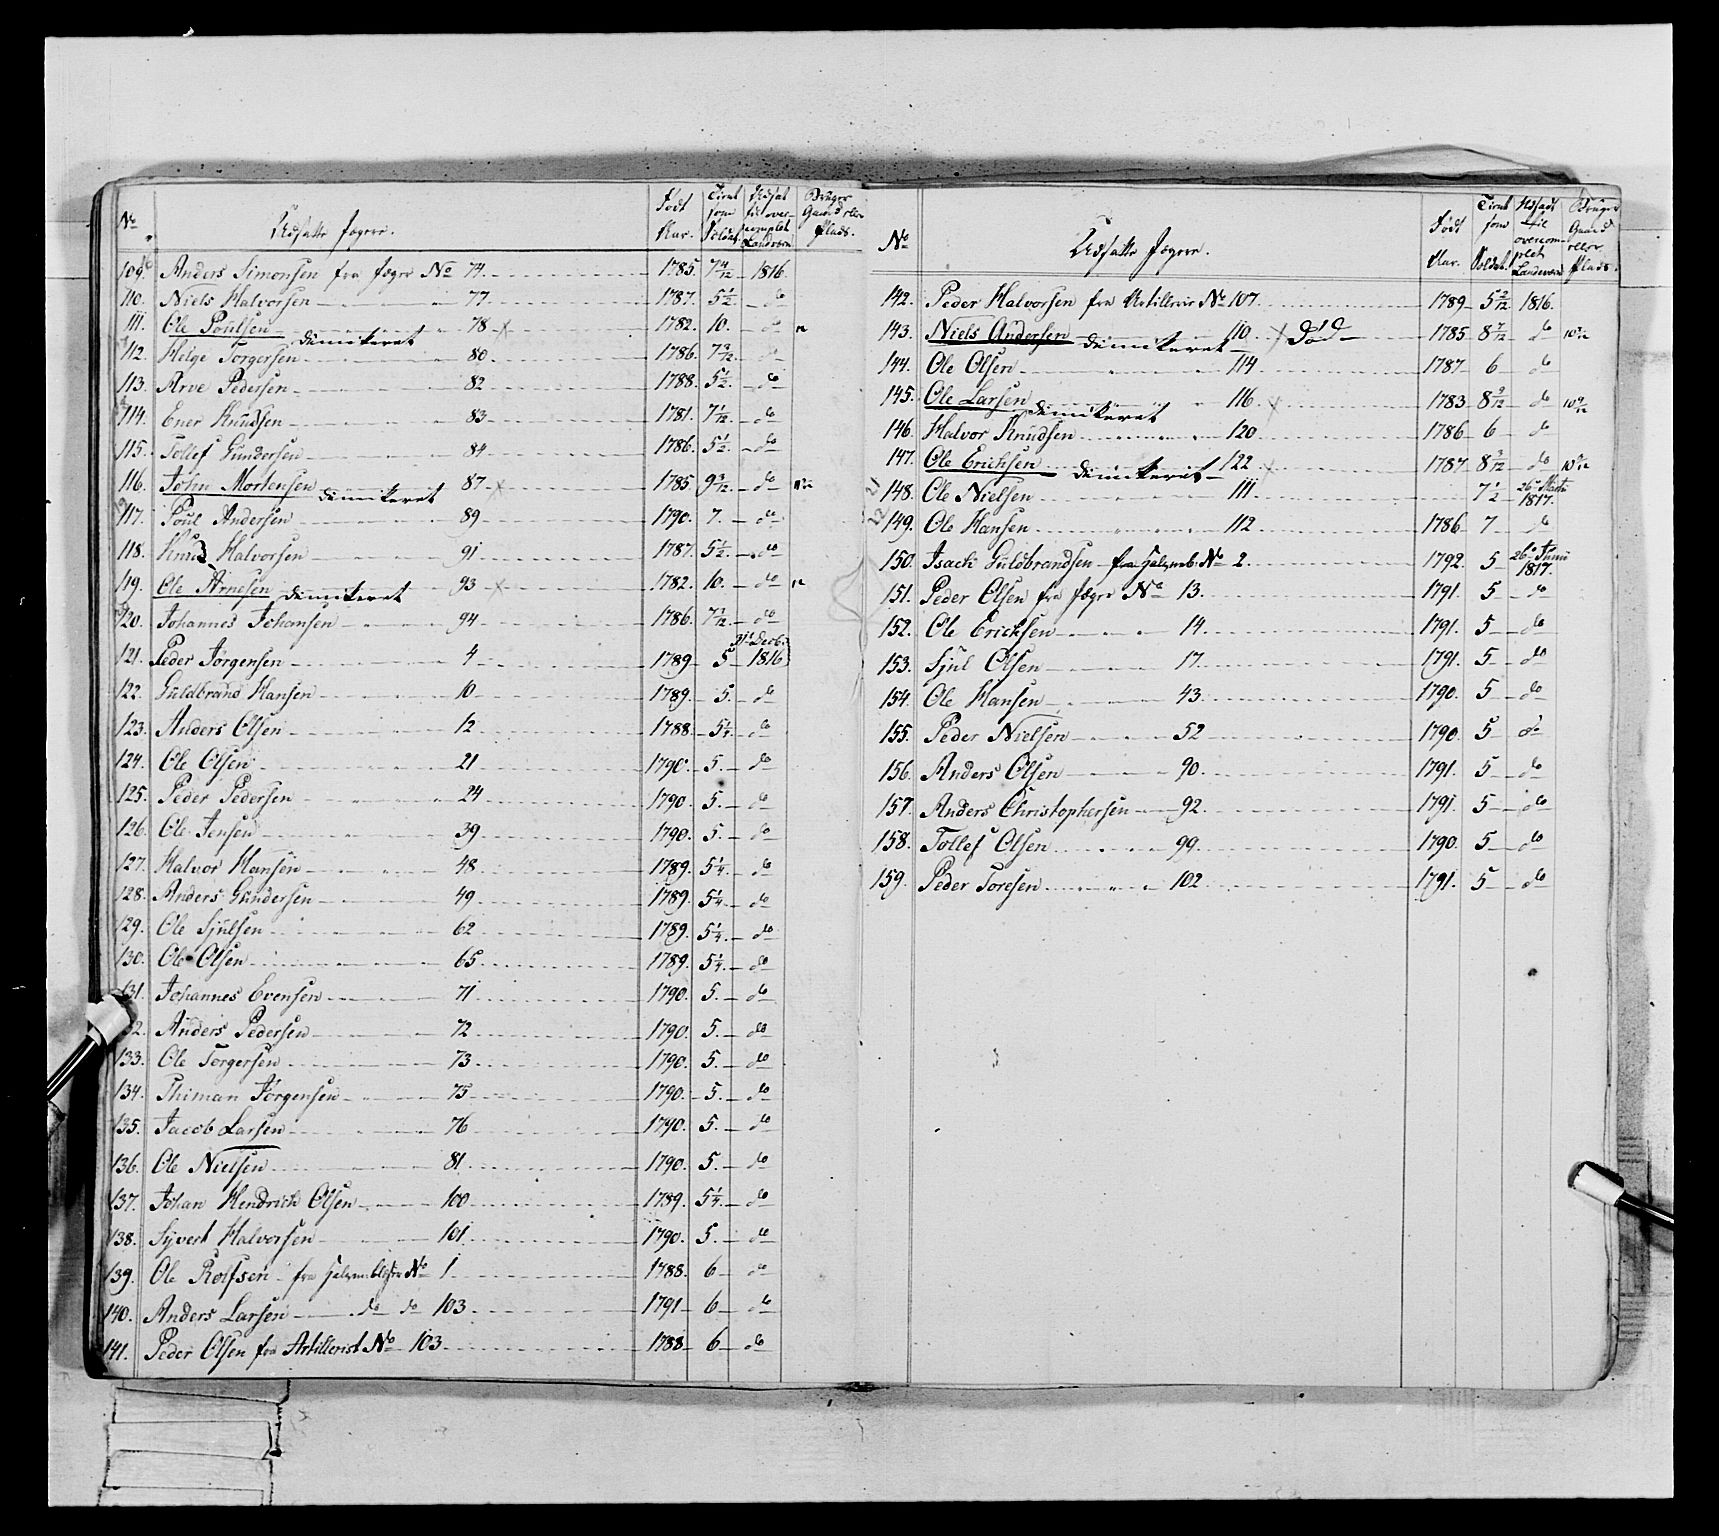 No
Udsatte Jægere.
Født Aar.
Tient som Soldat.
Udsat til over-complet Landværn
Bruger Gaard eller Plads.
109. Anders Simonsen fra Jæger No 74. 1785. 7 4/12 1816.
110. Niels Halvorsen 77. 1787. 5 1/2 do
111. Ole Poulsen dimiteret 78 1782. 10. do
112. Helge Torgersen 80 1786. 7 2/12 do
113. Arve Pedersen 82 1788. 5 1/2 do
114. Ener Knudsen 83 1781. 7 1/12 do
115. Tollef Gundersen 84 1786. 5 1/2 do
116. John Mortensen dimiteret 87 1785 9 3/12 do
117. Poul Andersen 89 1790. 7. do
118. Knud Halvorsen 91 1787. 5 1/2 do
119. Ole Arnesen dimiteret 93 1782. 10. do
120. Johannes Johansen 94 1786. 7 1/12 do
121. Peder Jørgensen 4 1789 5 31 Decb. 1816
122. Guldbrand Hansen 10 1789. 5. do
123. Anders Olsen 12 1788. 5 1/4 do
124. Ole Olsen 21 1790. 5. do
125. Peder Pedersen 24 1790. 5. do
126. Ole Jensen 39 1790. 5. do
127. Halvor Hansen 48 1789. 5 1/4 do
128. Anders Gundersen 49 1789. 5 1/4 do
129. Ole Sjulsen 62 1789. 5 1/4 do
130. Ole Olsen 65 1789. 5 1/4 do
131. Johannes Evensen 71 1790. 5. do
132. Anders Pedersen 72 1790. 5. do
133. Ole Torgersen 73 1790. 5. do
134. Thiman Jørgensen 75 1790. 5. do
135. Jacob Larsen 76 1790. 5. do
136. Ole Nielsen 81 1790. 5. do
137. Johan Hendrich Olsen 100 1789. 5 1/4 do
138. Syvert Halvorsen 101 1790. 5. do
139. Ole Rolfsen fra No 1 1788. 6 do
140. Anders Larsen do do 103 1791 6 do
141. Peder Olsen fra Artillerist No 103 1788 6 do
No
Udsatte Jægere.
Født Aar.
Tient som Soldat.
Udsadt til overcomplet Landeværn
Bruger Gaard eller Plads.
142. Peder Halvorsen fra Artillerie No 107. 1789 5 2/12 1816.
143. Niels Andersen dimiteret 110. Død 1785 8 7/12 do
144. Ole Olsen 114 1787 6 do
145. Ole Larsen dimiteret 116 1783 8 9/12 do
146. Halvor Knudsen 120 1786 6 do
147. Ole Erichsen dimiteret 122 1787 8 3/12 do
148. Ole Nielsen 111 7 1/2 26 Martz 1817.
149. Ole Hansen 112 1786 7 do
150. Isach Guldbrandsen fra No 2. 1792. 5 26 Junii 1817.
151. Peder Olsen fra Jæger No 13. 1791. 5 do
152. Ole Ericksen 14. 1791. 5 do
153. Sjul Olsen 17. 1791. 5 do
154. Ole Hansen 43. 1790. 5 do
155. Peder Nielsen 52 1790. 5 do
156. Anders Olsen 90. 1791. 5 do
157. Anders Christophersen 92. 1791. 5 do
158. Tollef Olsen 99. 1790. 5 do
159. Peder Toresen 102. 1791. 5 do